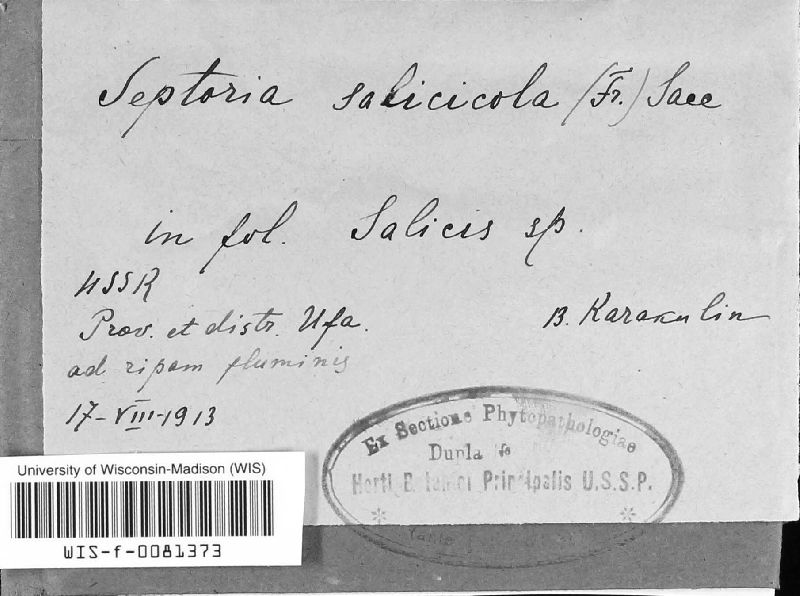 Septoria salicicola (Fr.) Sacc
in fol. Salicis sp.
USSR
Prov. et distr. Ufa.
B. Karakulin
ad ripam fluminis
17-VIII-1913
Ex Sectione Phytopathologiae
Dupla
Horti Principalis U.S.S.P.
University of Wisconsin-Madison (WIS)
WIS-f-0081373